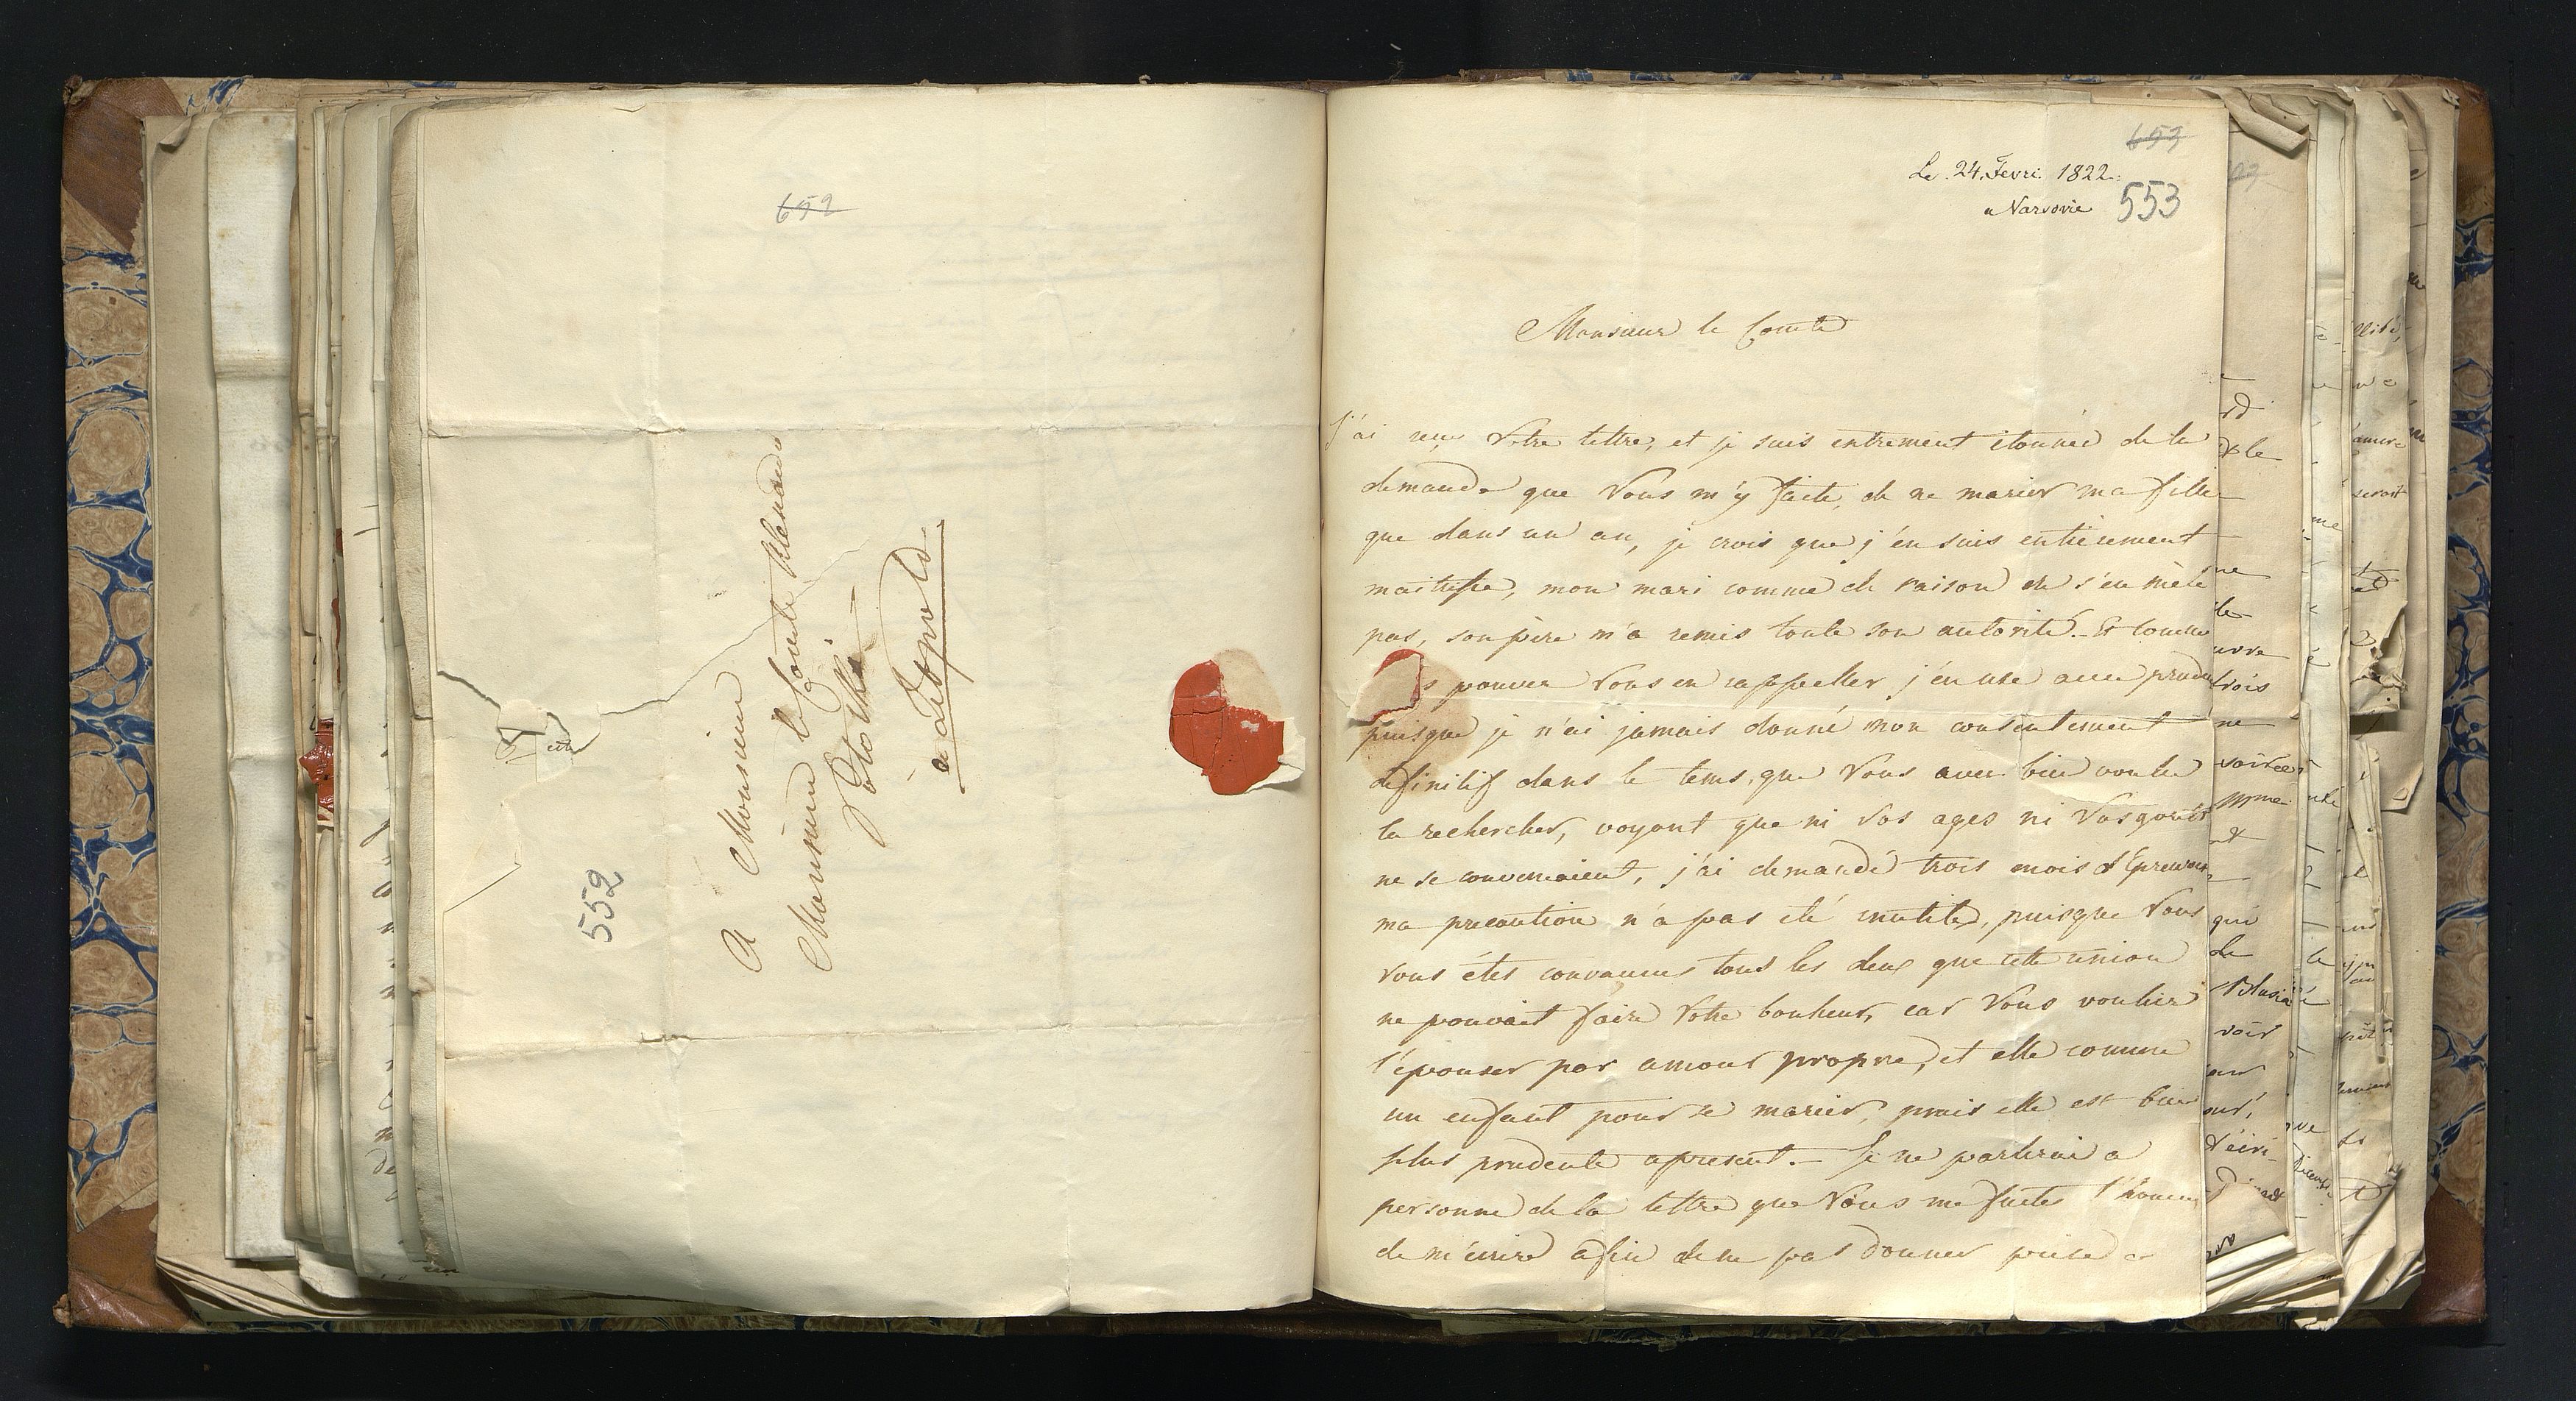 652
A Monsieur
Monsieur le Comte Alexandre
Potocki
à Léopold
552
653
Le 24. Fevri. 1822.
a Varsovie
553
Monsieur le Comte
J'ai reçu Votre lettre, et je suis entrement étonnée de la
demande que Vous m'y faite, de ne marier ma fille
que dans un an, je crois que j'en suis entierement
maitresse, mon mari comme de raison ne s'en mêle
pas, son père m'a remis toute son autorité. Et comme
pouvez Vous en rappeller j'en use avec prude
puisque je n'ai jamais donné mon consentement
definitif dans le tems, que Vous avez bien voulu
la rechercher, voyant que ni Vos ages ni Vos gouts
ne se convenoient, j'ai demandé trois mois d'épreuve
ma precaution n'a pas été inutile, puisque Vous
vous étes convaincus tous les deux que cette union
ne pouvoit faire Votre bonheur, car Vous vouliez
l'épouser par amour propre, et elle comme
un enfant pour se marier, mais elle est bien
plus prudente apresent. Je ne parlerai a
personne de la lettre que Vous me faites l'honeur
de m'écrire afin de ne pas donner prise a